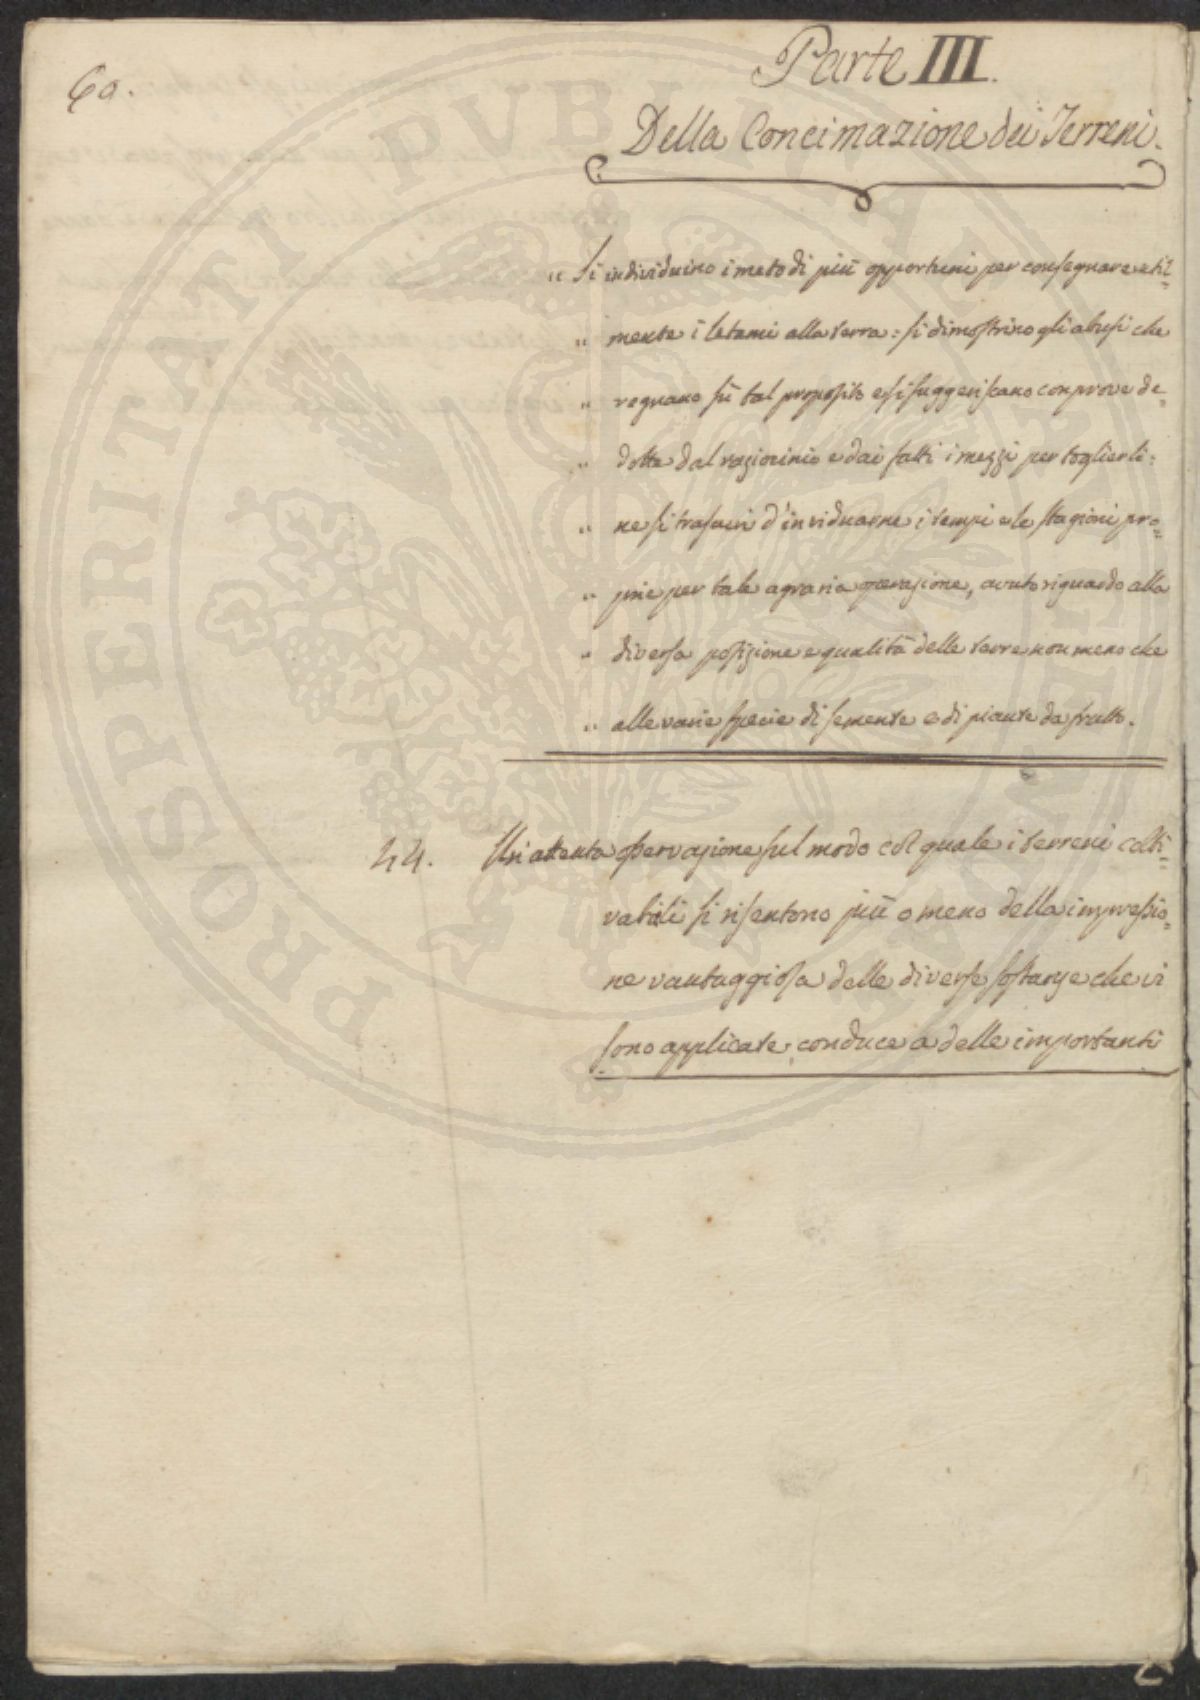 60.
Parte III.
Della Concimazione dei Terreni.
" Si individuino i metodi più opportuni per consegnare util=
" mente i letami alla terra: si dimostrino gli abusi che
" regnano sù tal proposito e si suggeriscano con prove de=
" dotte dal raziocinio e dai fatti i mezzi per toglierli:
" ne si trascuri d'inviduarne i tempi e le stagioni pro=
" prie per tale agraria operazione, avuto riguardo alla
" diversa posizione e qualità delle terre non meno che
" alle varie specie di semente e di piante da frutto.
44. Un'attenta osservazione sul modo col quale i terreni colti=
vabili si risentono più o meno della impressio=
ne vantaggiosa delle diverse sostanze che vi
sono applicate, conduce a delle importanti
PROSPERITATI PVBLICAE